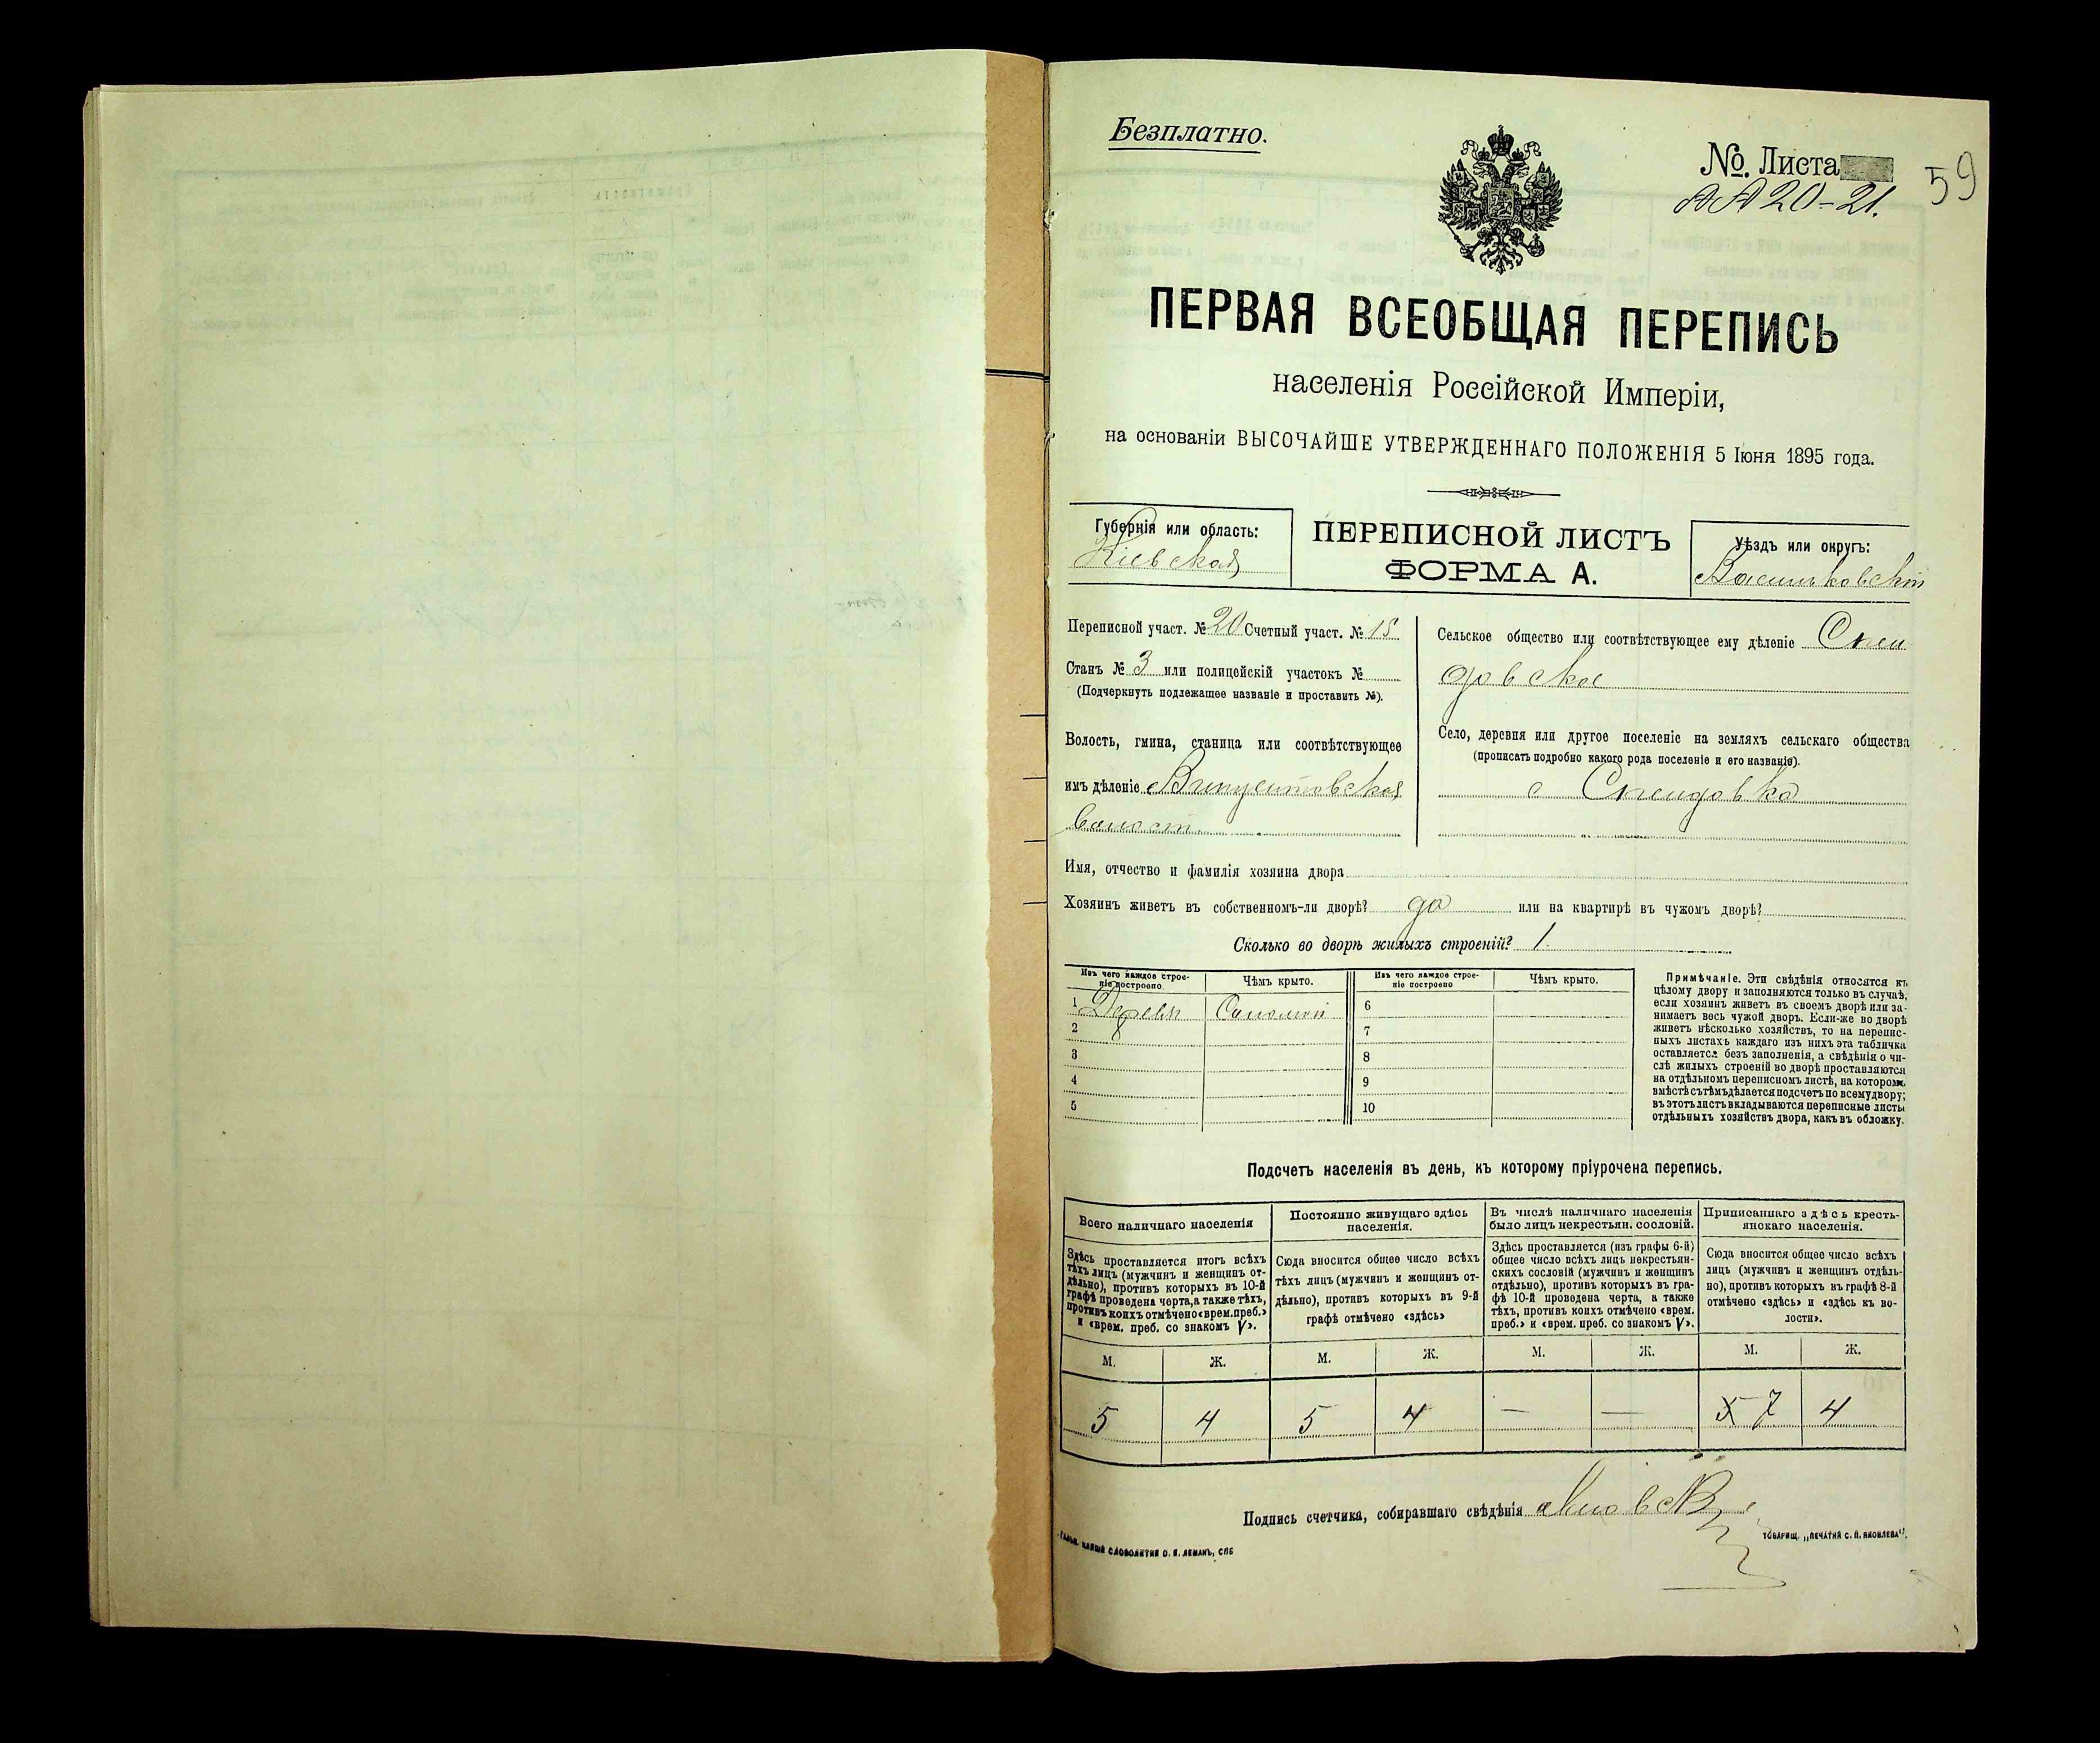 Безплатно.
№. Листа
АА 20-21.
59
ПЕРВАЯ ВСЕОБЩАЯ ПЕРЕПИСЬ
населенія Россійской Имперіи,
на основаніи ВЫСОЧАЙШЕ УТВЕРЖДЕННАГО ПОЛОЖЕНІЯ 5 Іюня 1895 года.
Губернія или область:
Кіевская
ПЕРЕПИСНОЙ ЛИСТЪ
ФОРМА А.
Уѣздъ или округъ:
Васильковскій
Переписной участ. № 20 Счетный участ. № 15
Станъ № 3 или полицейскій участокъ №
(Подчеркнуть подлежащее названіе и проставить №).
Волость, гмина, станица или соотвѣтствующее
имъ дѣленіе Винцентовская
волость
Сельское общество или соотвѣтствующее ему дѣленіе Спен
довское
Село, деревня или другое поселеніе на земляхъ сельскаго общества
(прописать подробно какого рода поселеніе и его названіе).
с Спендовка
Имя, отчество и фамилія хозяина двора
Хозяинъ живетъ въ собственномъ-ли дворѣ? да или на квартирѣ въ чужомъ дворѣ?
Сколько во дворѣ жилыхъ строеній? 1.
Изъ чего каждое строе-
ніе построено
Чѣмъ крыто.
Изъ чего каждое строе-
ніе построено
Чѣмъ крыто.
1 Дерева Соломой 6
2 7
3 8
4 9
5 10
Примѣчаніе. Эти свѣдѣнія относятся къ
цѣлому двору и заполняются только въ случаѣ,
если хозяинъ живетъ въ своемъ дворѣ или за-
нимаетъ весь чужой дворъ. Если-же во дворѣ
живетъ нѣсколько хозяйствъ, то на перепис-
ныхъ листахъ каждаго изъ нихъ эта табличка
оставляется безъ заполненія, а свѣдѣнія о чи-
слѣ жилыхъ строеній во дворѣ проставляются
на отдѣльномъ переписномъ листѣ, на которомъ
вмѣстѣ съ тѣмъ дѣлается подсчетъ по всему двору;
въ этотъ листъ вкладываются переписные листы
отдѣльныхъ хозяйствъ двора, какъ въ обложку.
Подсчетъ населенія въ день, къ которому пріурочена перепись.
Всего наличнаго населенія
Здѣсь проставляется итогъ всѣхъ
тѣхъ лицъ (мужчинъ и женщинъ от-
дѣльно), противъ которыхъ въ 10-й
графѣ проведена черта, а также тѣхъ,
противъ коихъ отмѣчено «врем. преб.»
и «врем. преб. со знакомъ V».
Постоянно живущаго здѣсь
населенія.
Сюда вносится общее число всѣхъ
тѣхъ лицъ (мужчинъ и женщинъ от-
дѣльно), противъ которыхъ въ 9-й
графѣ отмѣчено «здѣсь»
Въ числѣ наличнаго населенія
было лицъ некрестьян. сословій.
Здѣсь проставляется (изъ графы 6-й)
общее число всѣхъ лицъ некрестьян-
скихъ сословій (мужчинъ и женщинъ
отдѣльно), противъ которыхъ въ гра-
фѣ 10-й проведена черта, а также
тѣхъ, противъ коихъ отмѣчено «врем.
преб.» и «врем. преб. со знакомъ V».
Приписаннаго здѣсь кресть-
янскаго населенія.
Сюда вносится общее число всѣхъ
лицъ (мужчинъ и женщинъ отдѣль-
но), противъ которыхъ въ графѣ 8-й
отмѣчено «здѣсь» и «здѣсь къ во-
лости».
М. Ж. М. Ж. М. Ж. М. Ж.
5 4 5 4 — — 5 7 4
Подпись счетчика, собиравшаго свѣдѣнія
СЛОВОЛИТНЯ О. И. ЛЕМАНЪ, СПБ
ТОВАРИЩ. „ПЕЧАТНЯ С. П. ЯКОВЛЕВА".